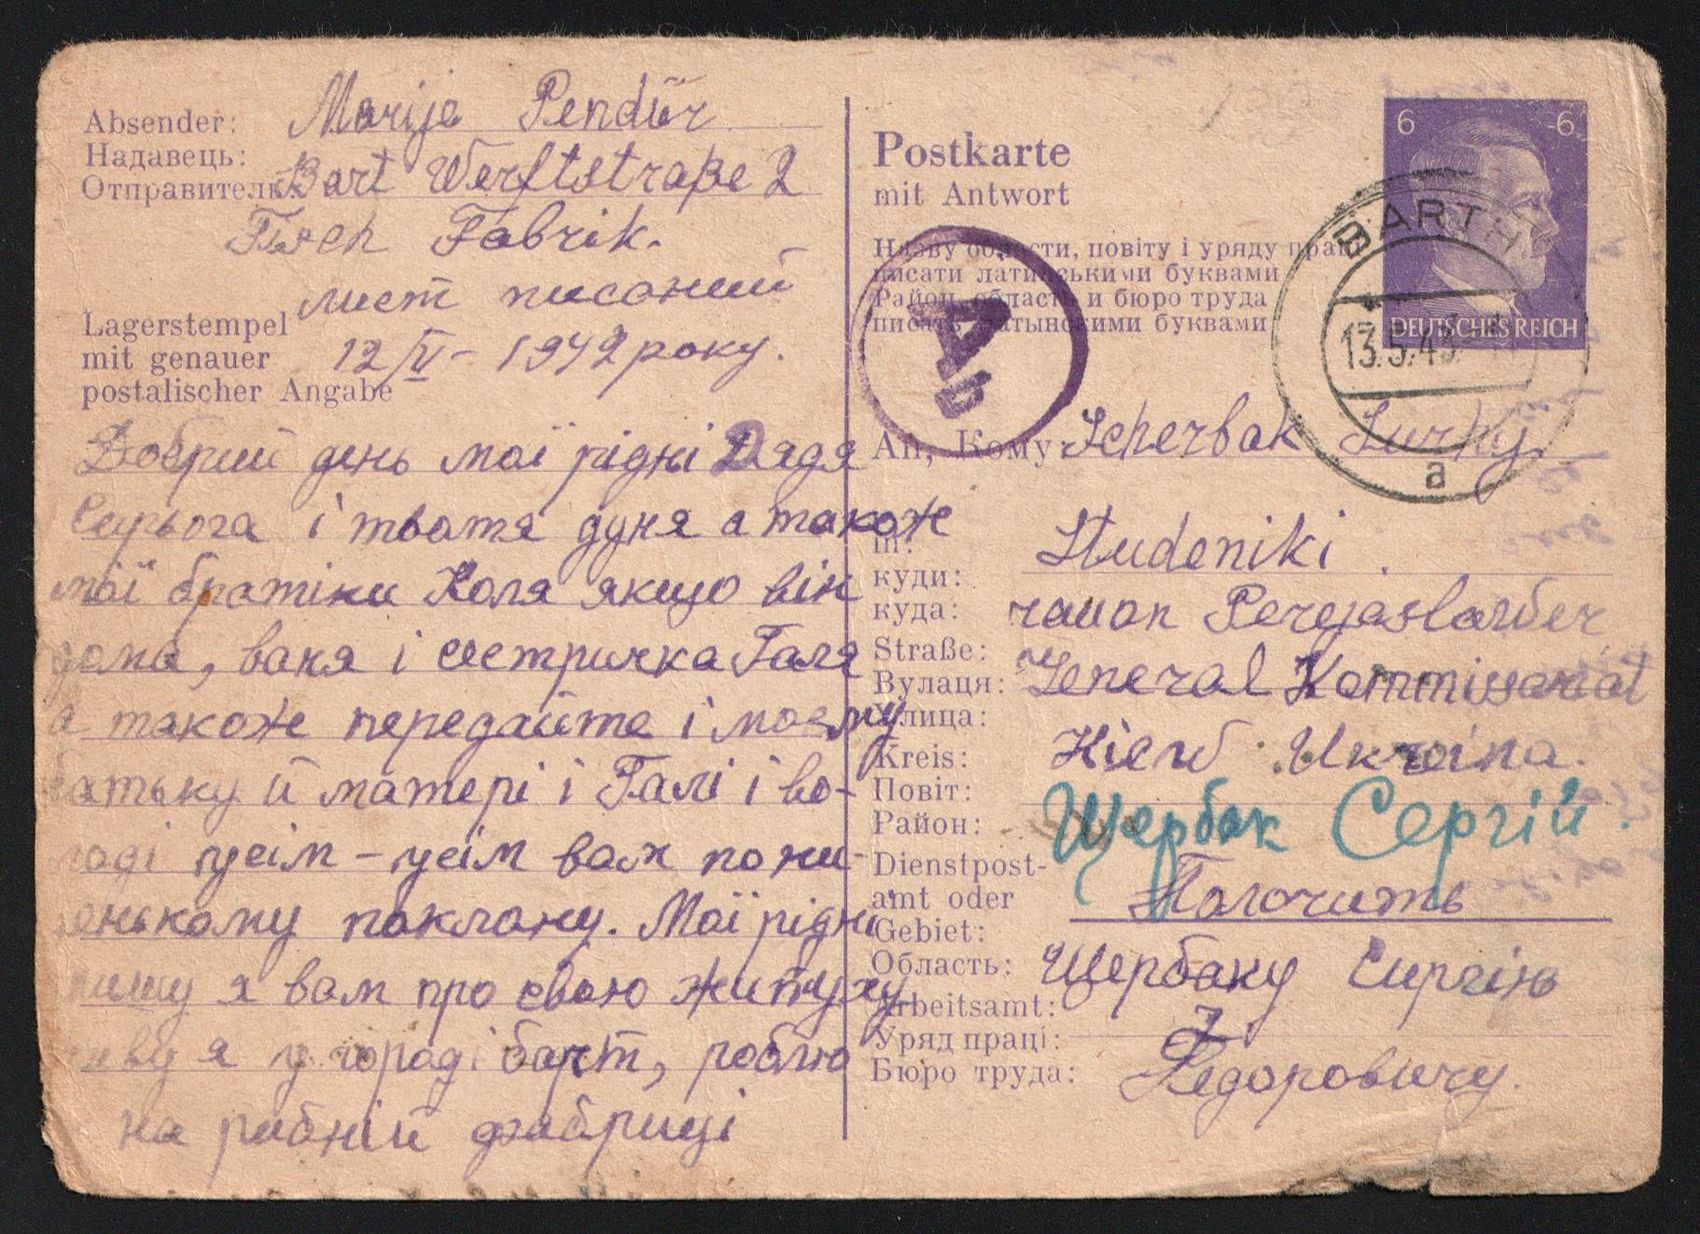 Absender:
Надавець:
Отправитель:
Marija Pendür
Bart Werftstraße 2
Fisch Fabrik.
лист писаний
12/V – 1942 року.
Lagerstempel
mit genauer
postalischer Angabe
Добрий день мої рідні Дядя
Сирьога і твотя дуня а також
мої братіки Коля якщо він
дома, ваня і сестричка Галя
а також передайте і моєму
батьку й матері і Галі і во-
лоді усім – усім вам по ни-
зенькому поклону. Мої рідні
пишу я вам про свою житуху
живу я у городі барт, роблю
на рибній фабриці
Postkarte
mit Antwort
Назву области, повіту і уряду праці
писати латинськими буквами
Район, область и бюро труда
писать латынскими буквами
6 6
DEUTSCHES REICH
BARTH
13.5.43
a
Ab
An, Кому
Scherbak Surhij
in:
куди:
куда:
Studeniki.
raijon Perejaslavber
Straße:
Вулаця:
Улица:
General Kommissariat
Kreis:
Повіт:
Район:
Kiew Ukraina.
Щербак Сергій.
Dienstpost-
amt oder
Gebiet:
Область:
Получить
Щербаку Сиргію
Arbeitsamt:
Уряд праці:
Бюро труда:
Федоровичу.